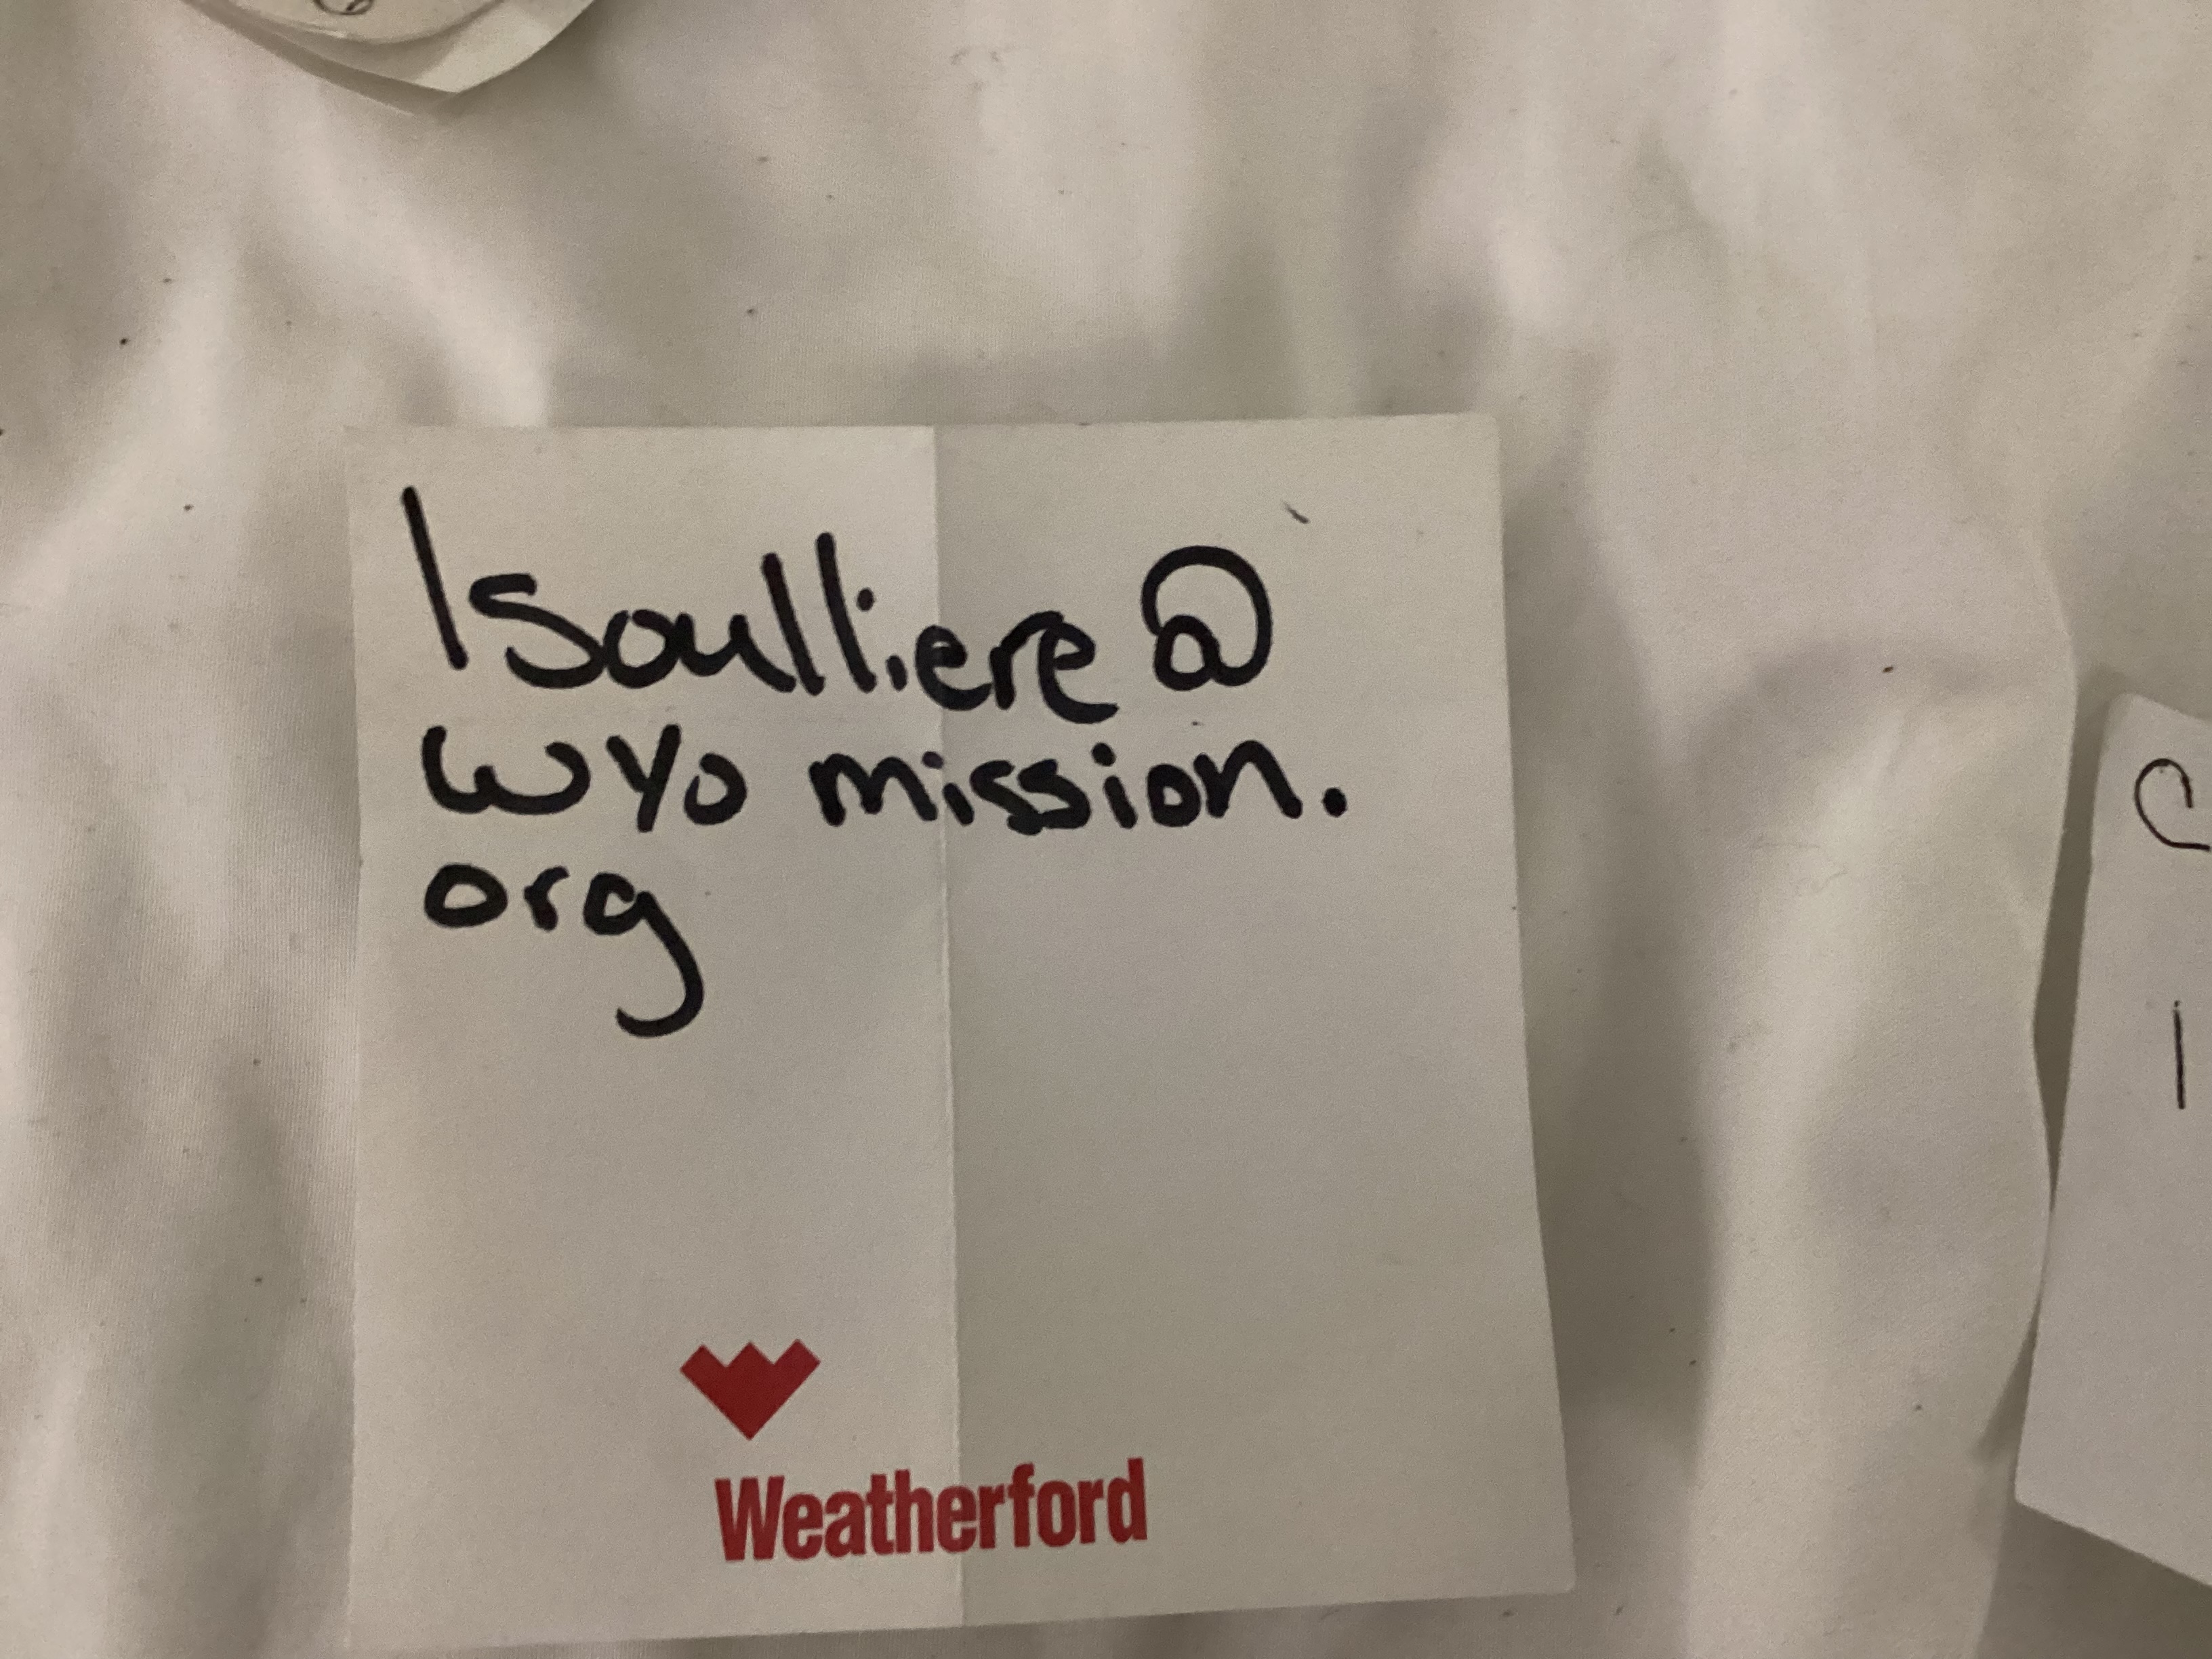 lsoulliere@
wyo mission.
org
Weatherford